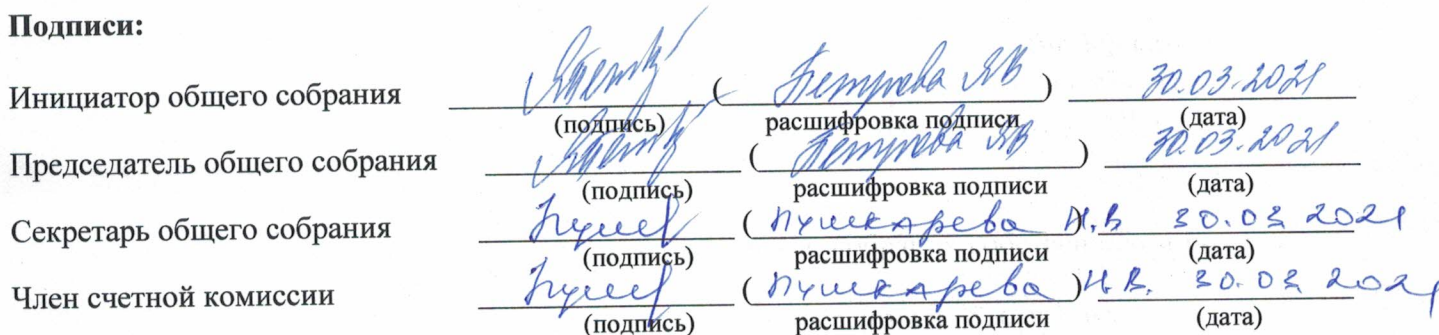 Подписи:
Инициатор общего собрания ( Петрова ЯВ ) 30.03.2021
(подпись) расшифровка подписи (дата)
Председатель общего собрания ( Петрова ЯВ ) 30.03.2021
(подпись) расшифровка подписи (дата)
Секретарь общего собрания ( Пушкарева Н.В 30.03 2021
(подпись) расшифровка подписи (дата)
Член счетной комиссии ( Пушкарева ) Н.В. 30.03 2021
(подпись) расшифровка подписи (дата)